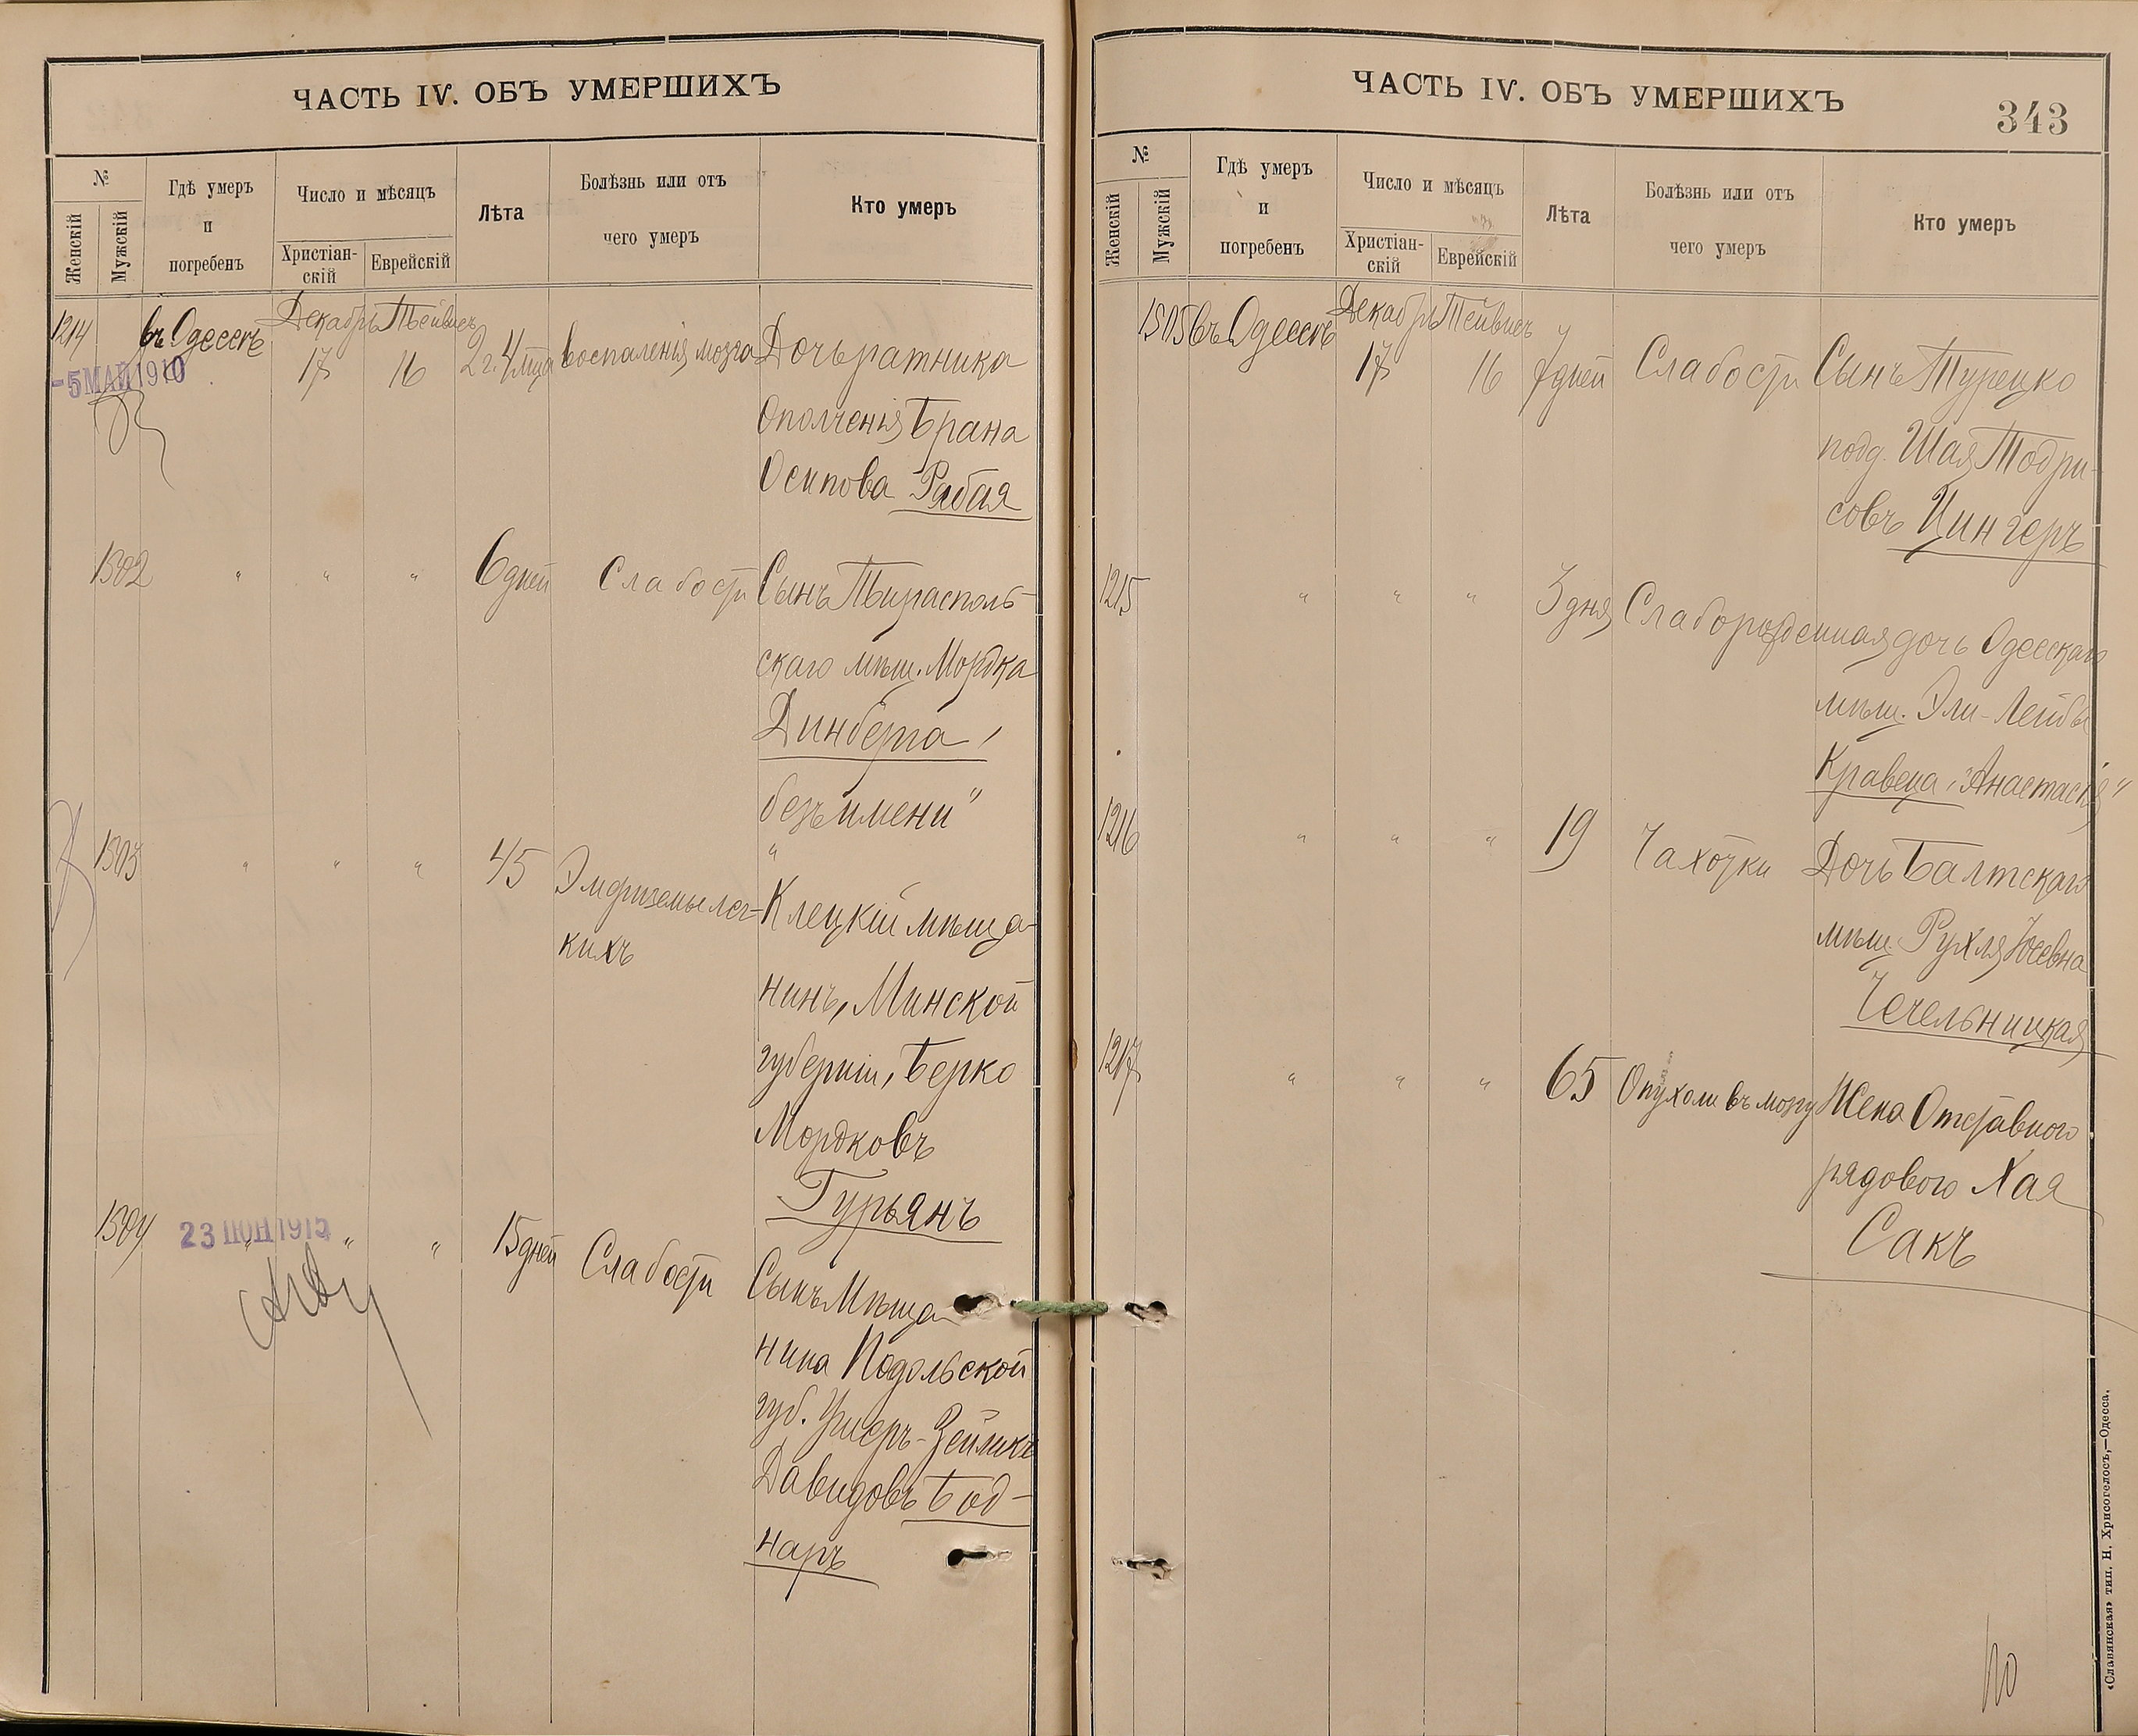 ЧАСТЬ IV. ОБЪ УМЕРШИХЪ
№
Женскій
Мужскій
Гдѣ умеръ
и
погребенъ
Число и мѣсяцъ
Христіан-
скій
Еврейскій
Лѣта
Болѣзнь или отъ
чего умеръ
Кто умеръ
1214 въ Одессѣ Декабрь Тейвисъ
17 16 2 г. 4 мца воспаленія мозга Дочь ратника
Ополченія Брана
Осипова Рабая
-5 МАЙ 1910
1502 " " " 6 дней Слабости Сынъ Тирасполь-
скаго мѣщ. Мордка
Динберга,
безъ имени"
1503 " " " 45 Эмфиземы лег- Клецкій мѣща-
кихъ
нинъ, Минской
губерніи, Берко
Мордковъ
Гурьянъ
1504 " " " 15 дней Слабости Сынъ Мѣща
23 ІЮН 1915
нина Подольской
губ. Ушеръ-Зейликъ
Давидовъ Бод-
наръ
ЧАСТЬ IV. ОБЪ УМЕРШИХЪ
343
№
Женскій
Мужскій
Гдѣ умеръ
и
погребенъ
Число и мѣсяцъ
Христіан-
скій
Еврейскій
Лѣта
Болѣзнь или отъ
чего умеръ
Кто умеръ
1505 въ Одессѣ Декабрь Тейвисъ
17 16 7 дней Слабости Сынъ Турецко
подд. Шая Тодри-
совъ Цингеръ
1215 " " " 3 дня Слаборожденная дочь Одесскаго
мѣщ. Эли-Лейбы
Кравеца, "Анастасія"
1216 " " " 19 Чахотки Дочь Балтскаго
мѣщ. Рухля Юсевна
Чечельницкая
1217 " " " 65 Опухоли въ мозгу Жена Отставного
рядового Хая
Сакъ
«Славянская» тип. Н. Хрисогелосъ,—Одесса.